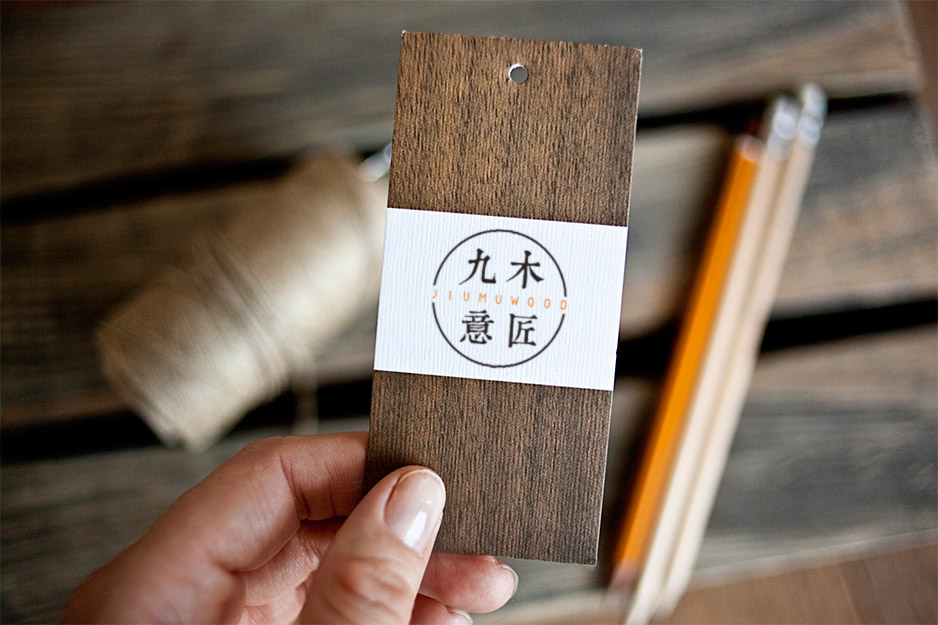 九木
JIUMUWOOD
意匠